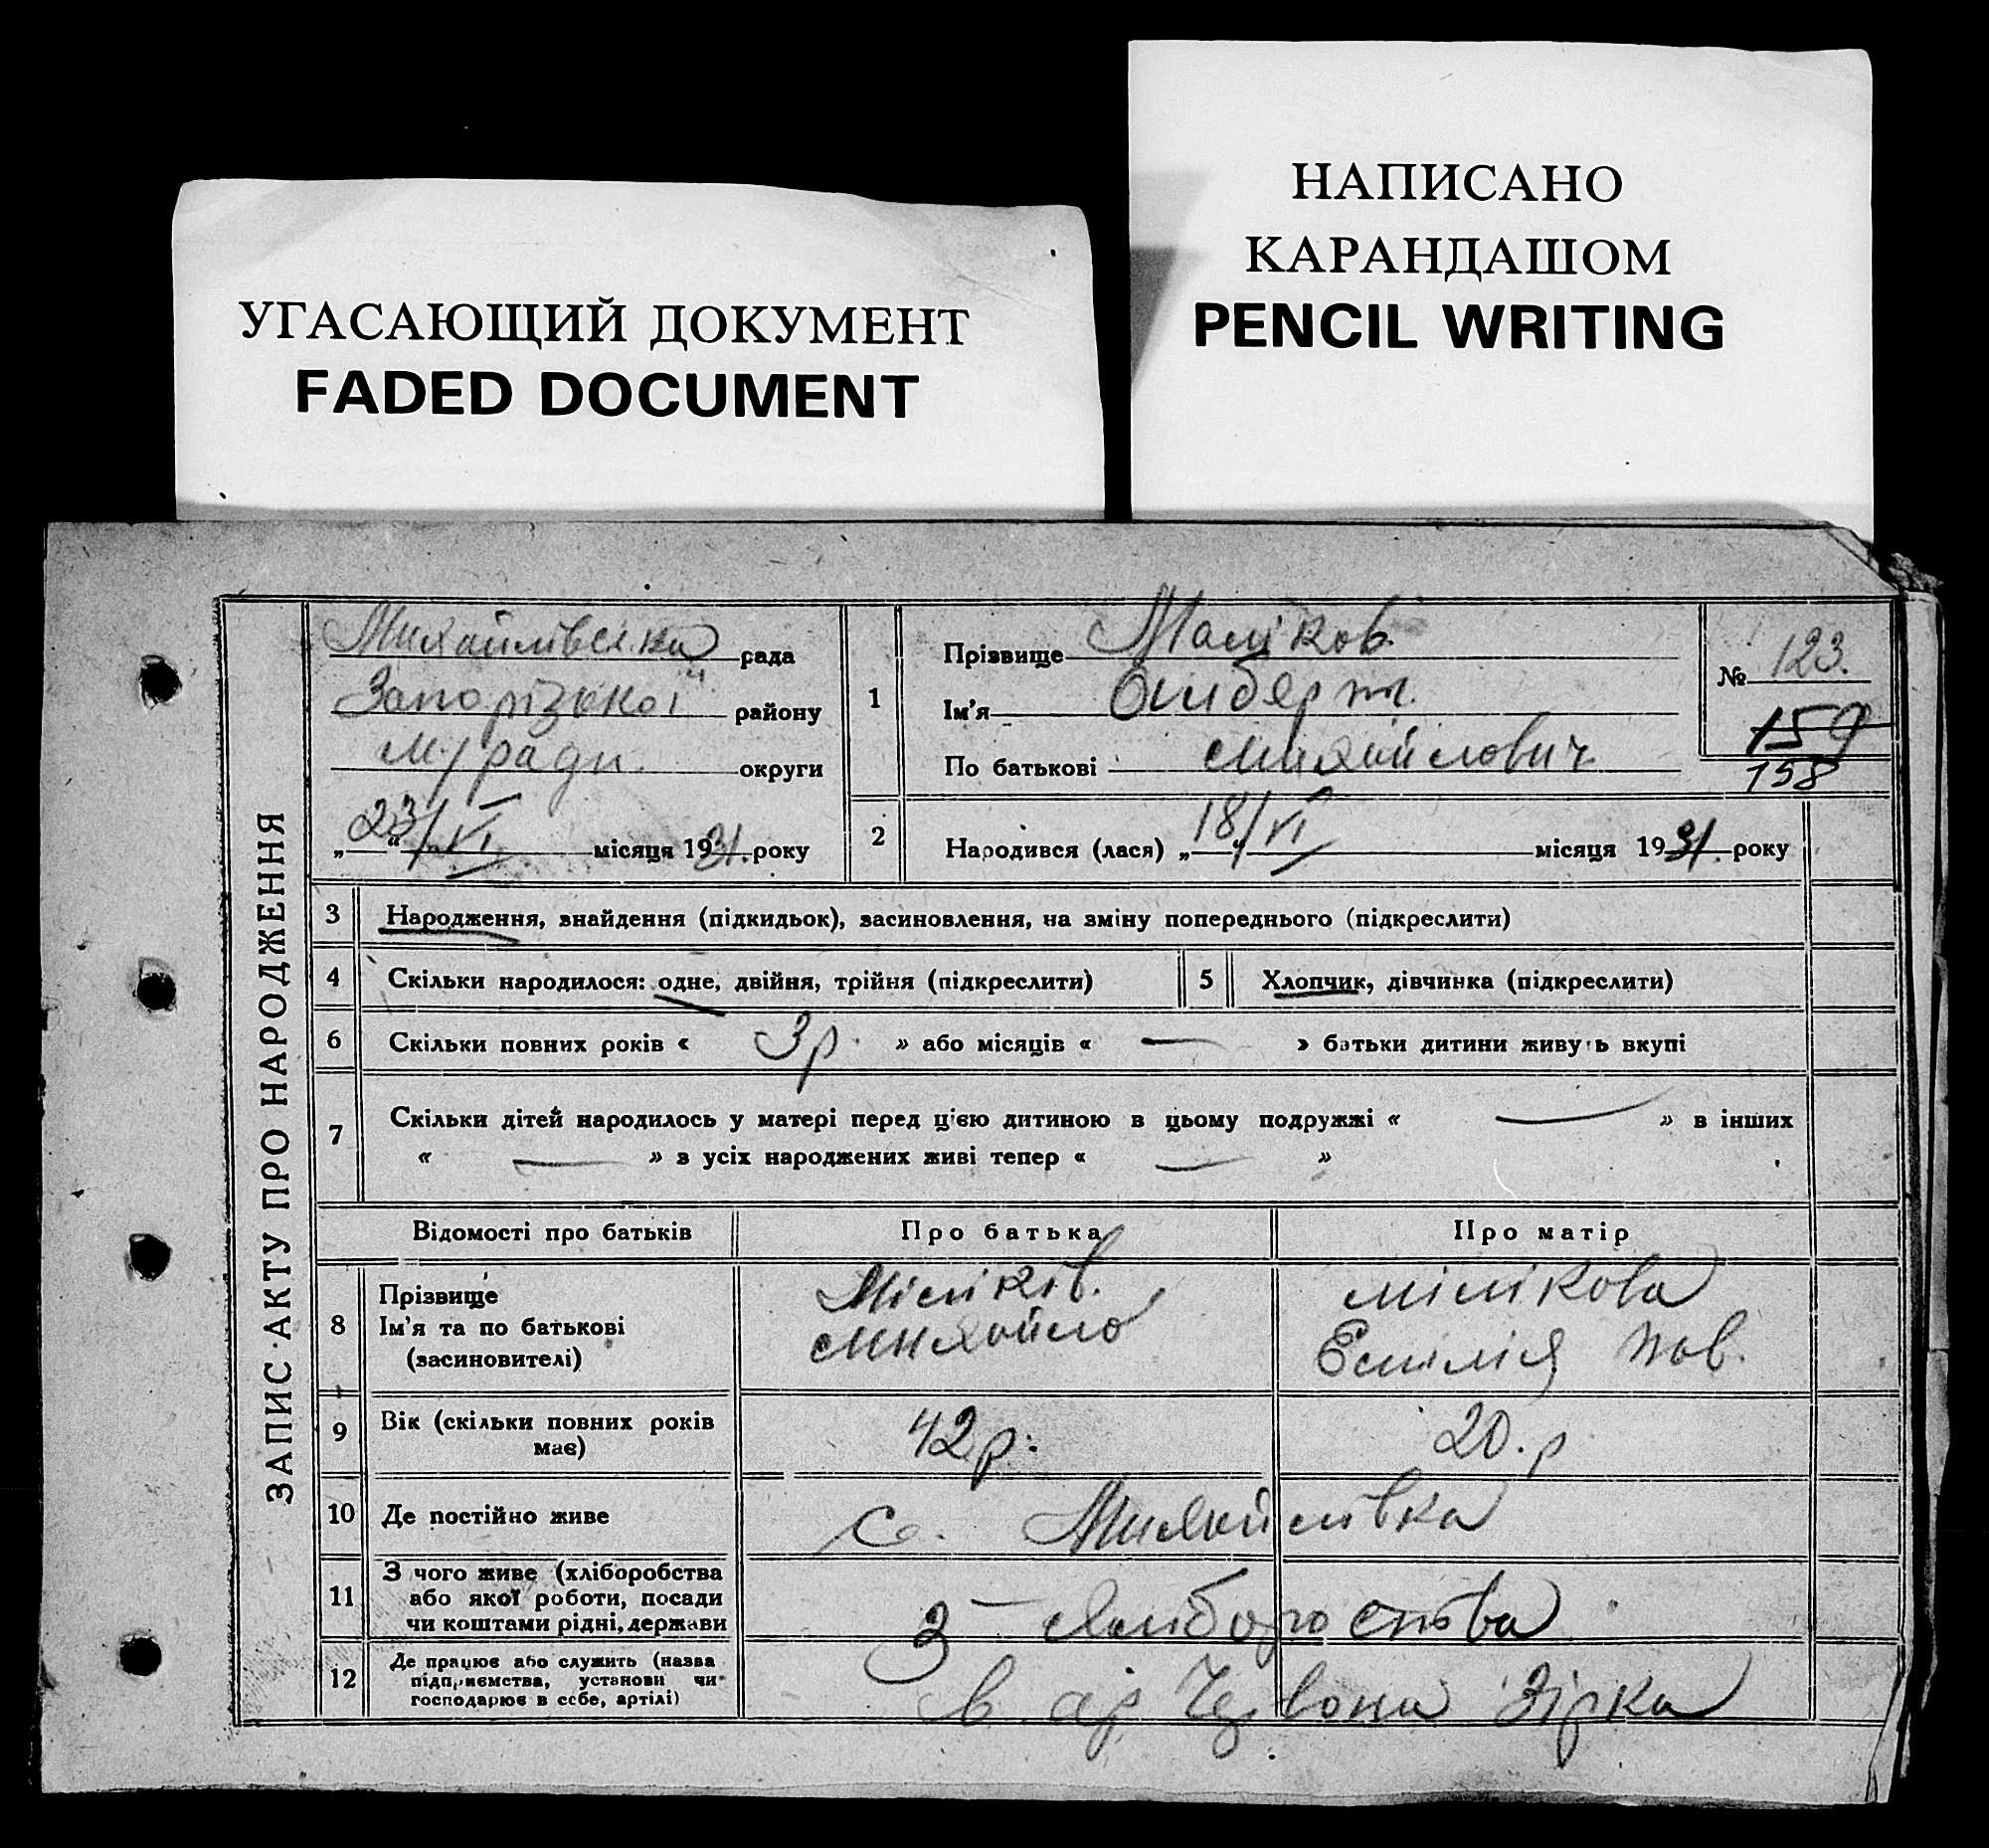 НАПИСАНО
КАРАНДАШОМ
PENCIL WRITING
УГАСАЮЩИЙ ДОКУМЕНТ
FADED DOCUMENT
ЗАПИС АКТУ ПРО НАРОДЖЕННЯ
Михайлівська рада
Запорізької району
м/ради округи
„23/“ VI місяця 1931. року
1
Прізвище
Ім'я
По батькові Михайлович
№ 123.
159
158
2 Народився (лася) „18/“ VI місяця 1931. року
3 Народження, знайдення (підкидьок), засиновлення, на зміну попереднього (підкреслити)
4 Скільки народилося: одне, двійня, трійня (підкреслити) 5 Хлопчик, дівчинка (підкреслити)
6 Скільки повних років « 3 р. » або місяців « — » батьки дитини живуть вкупі
7 Скільки дітей народилось у матері перед цією дитиною в цьому подружжі « — » в інших
« — » з усіх народжених живі тепер « — »
Відомості про батьків Про батька Про матір
8 Прізвище Мілікова
Ім'я та по батькові Михайло Емілія Пав.
(засиновителі)
9 Вік (скільки повних років має) 42 р. 20. р
10 Де постійно живе с. Михайлівка
11 З чого живе (хліборобства
або якої роботи, посади
чи коштами рідні, держави З хліборобства
12 Де працює або служить (назва
підприємства, установи чи
господарює в себе, артілі) в ар. Червона Зірка